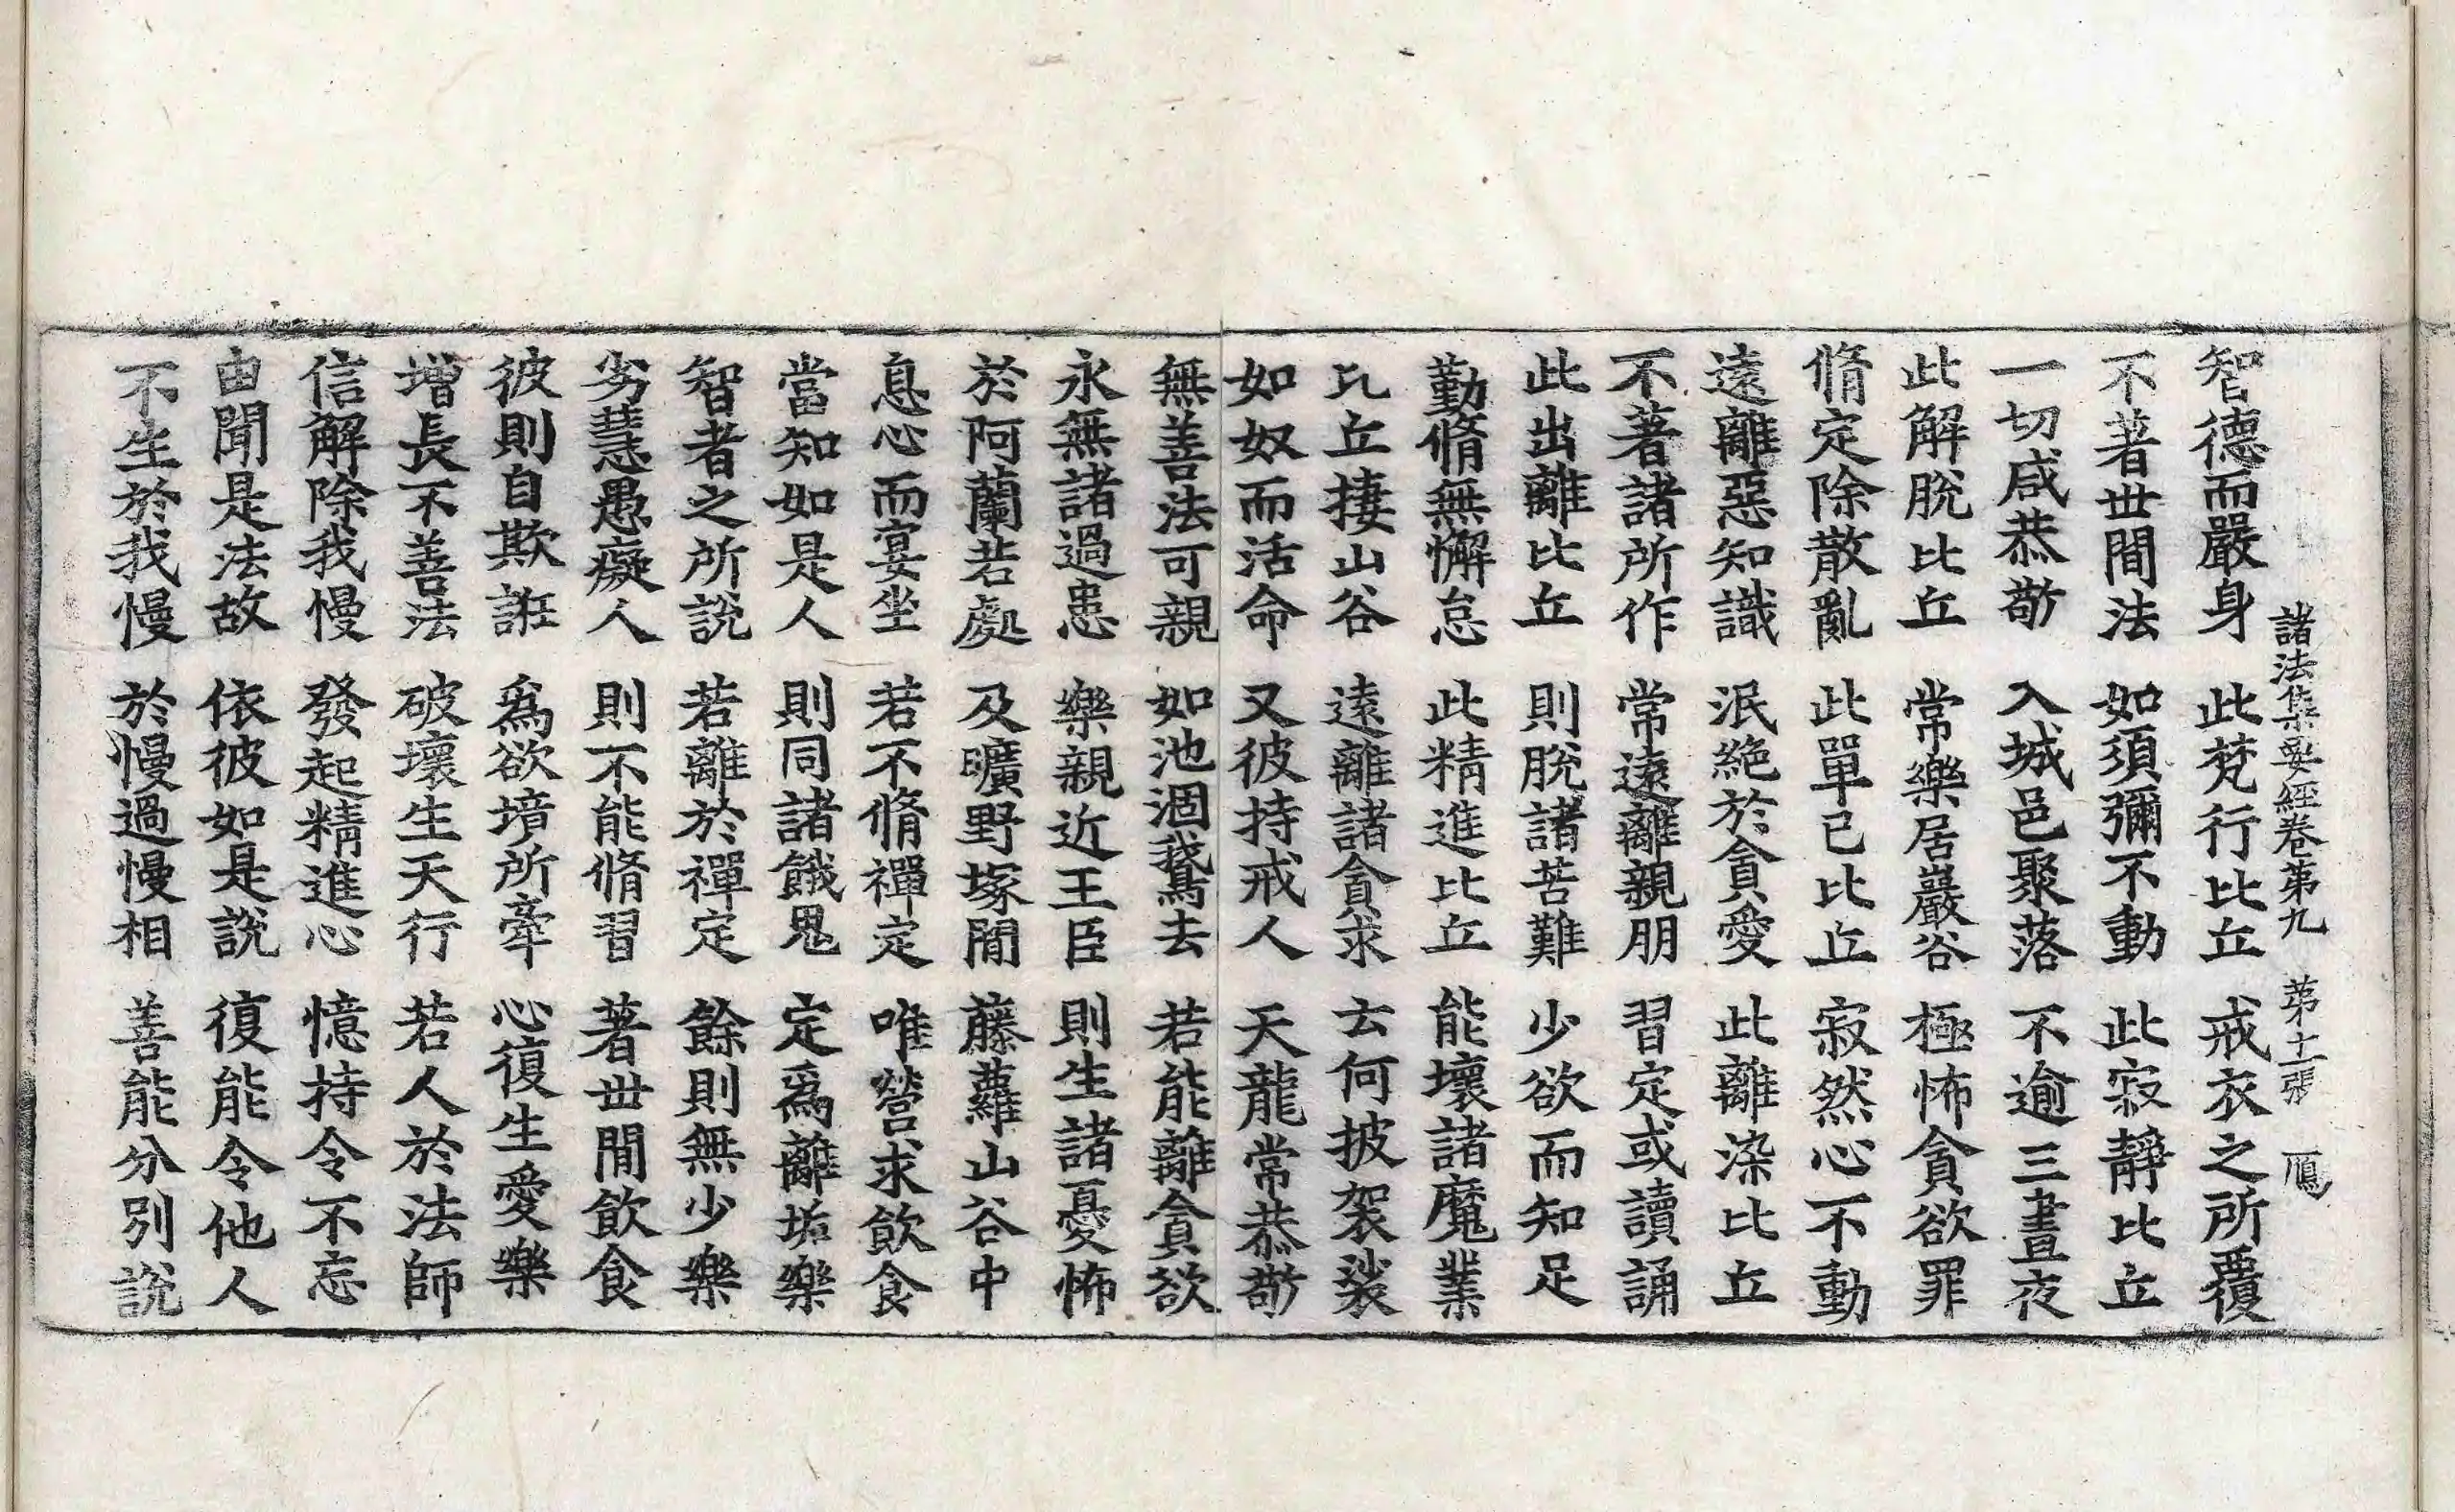 諸法集要經卷第九 第十一張 鴈
智德而嚴身 此梵行比丘 戒衣之所覆
不著世間法 如須彌不動 此寂靜比丘
一切咸恭敬 入城邑聚落 不逾三晝夜
此解脫比丘 常樂居巖谷 極怖貪欲罪
脩定除散亂 此單已比丘 寂然心不動
遠離惡知識 泯絶於貪愛 此離染比丘
不著諸所作 常遠離親朋 習定或讀誦
此出離比丘 則脫諸苦難 少欲而知足
勤脩無懈怠 此精進比丘 能壞諸魔業
比丘捿山谷 遠離諸貪求 云何披袈裟
如奴而活命 又彼持戒人 天龍常恭敬
無善法可親 如池涸鵝去 若能離貪欲
永無諸過患 樂親近王臣 則生諸憂怖
於阿蘭若處 及曠野塚間 藤蘿山谷中
息心而宴坐 若不脩禪定 唯營求飲食
當知如是人 則同諸餓鬼 定爲離垢樂
智者之所說 若離於禪定 餘則無少樂
劣慧愚癡人 則不能脩習 著世間飲食
彼則自欺誑 爲欲境所牽 心復生愛樂
增長不善法 破壞生天行 若人於法師
信解除我慢 發起精進心 憶持令不忘
由聞是法故 依彼如是說 復能令他人
不生於我慢 於慢過慢相 善能分別說